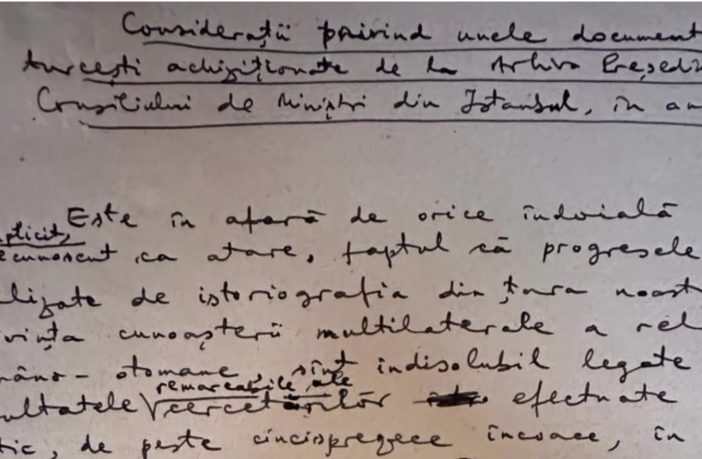 Considerații privind unele document
turcești achiziționate de la Arhiva Președi
Consiliului de Miniștri din Istanbul, în an
Este în afară de orice îndoială
plicit,
ecunoscut ca atare, faptul că progresele
alizate de istoriografia din țara noast
vința cunoașterii multilaterale a rel
mâno-otomane, sînt indisolubil legate
remarcabile ale
zultatele cercetărilor efectuate
tic, de peste cincisprezece încoace, în